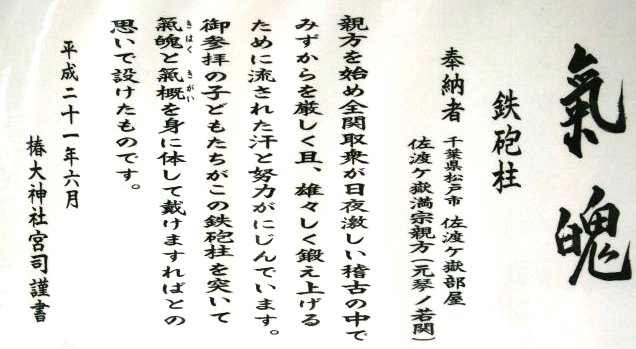 氣魄
鉄砲柱
奉納者 千葉県松戸市 佐渡ケ嶽部屋
佐渡ケ嶽満宗親方(元琴ノ若関)
親方を始め全関取衆が日夜激しい稽古の中で
みずからを厳しく且、雄々しく鍛え上げる
ために流された汗と努力がにじんでいます。
御参拝の子どもたちがこの鉄砲柱を突いて
氣魄と氣概を身に体して戴けますればとの
きはく きがい
思いで設けたものです。
平成二十一年六月
椿大神社宮司謹書